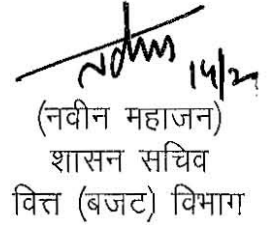 14/2
(नवीन महाजन)
शासन सचिव
वित्त (बजट) विभाग